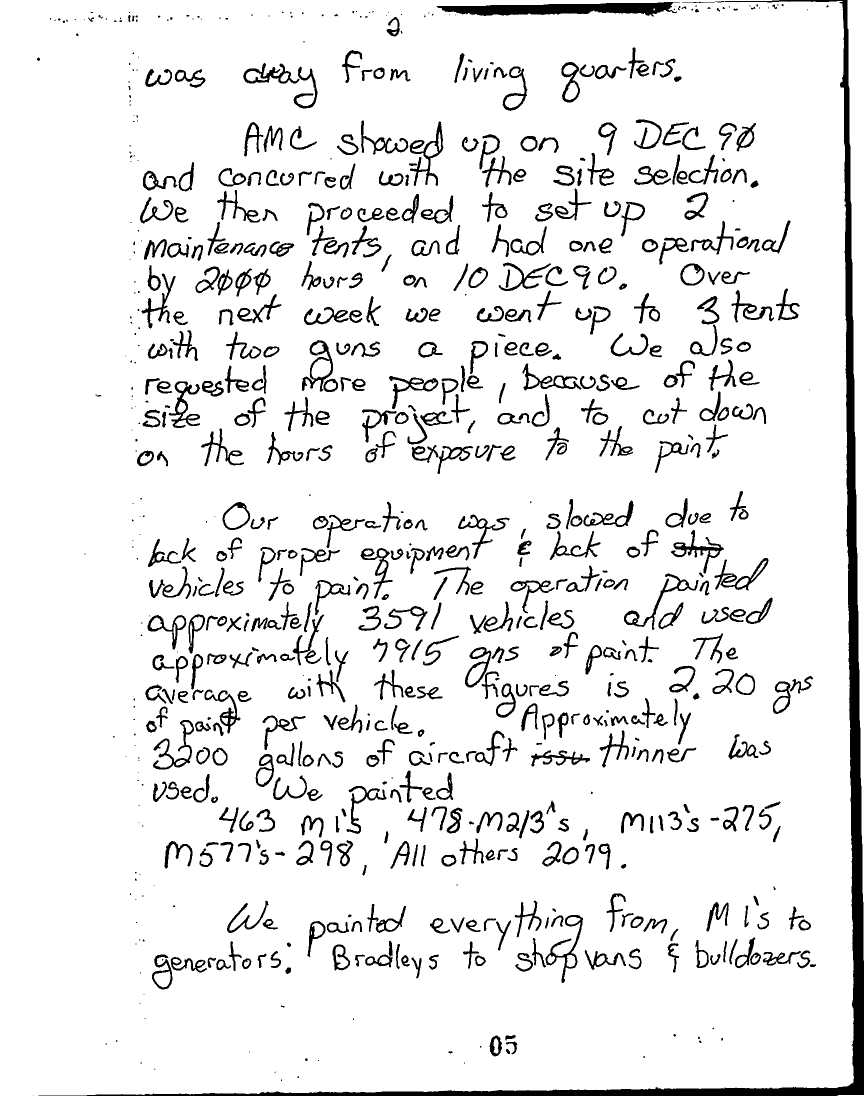 2
was away from living quarters.
AMC showed up on 9 DEC 90
and concurred with the site selection.
We then proceeded to set up 2
maintenance tents, and had one operational
by 2000 hours on 10 DEC 90. Over
the next week we went up to 3 tents
with two guns a piece. We also
requested more people, because of the
size of the project, and to cut down
on the hours of exposure to the paint.
Our operation was slowed due to
lack of proper equipment & lack of ship
vehicles to paint. The operation painted
approximately 3591 vehicles and used
approximately 7915 gns of paint. The
average with these figures is 2.20 gns
of paint per vehicle. Approximately
3200 gallons of aircraft issu thinner was
used. We painted
463 M1's, 478-M2/3's, M113's-275,
M577's-298, All others 2079.
We painted everything from, M1's to
generators; Bradleys to shop vans & bulldozers.
05